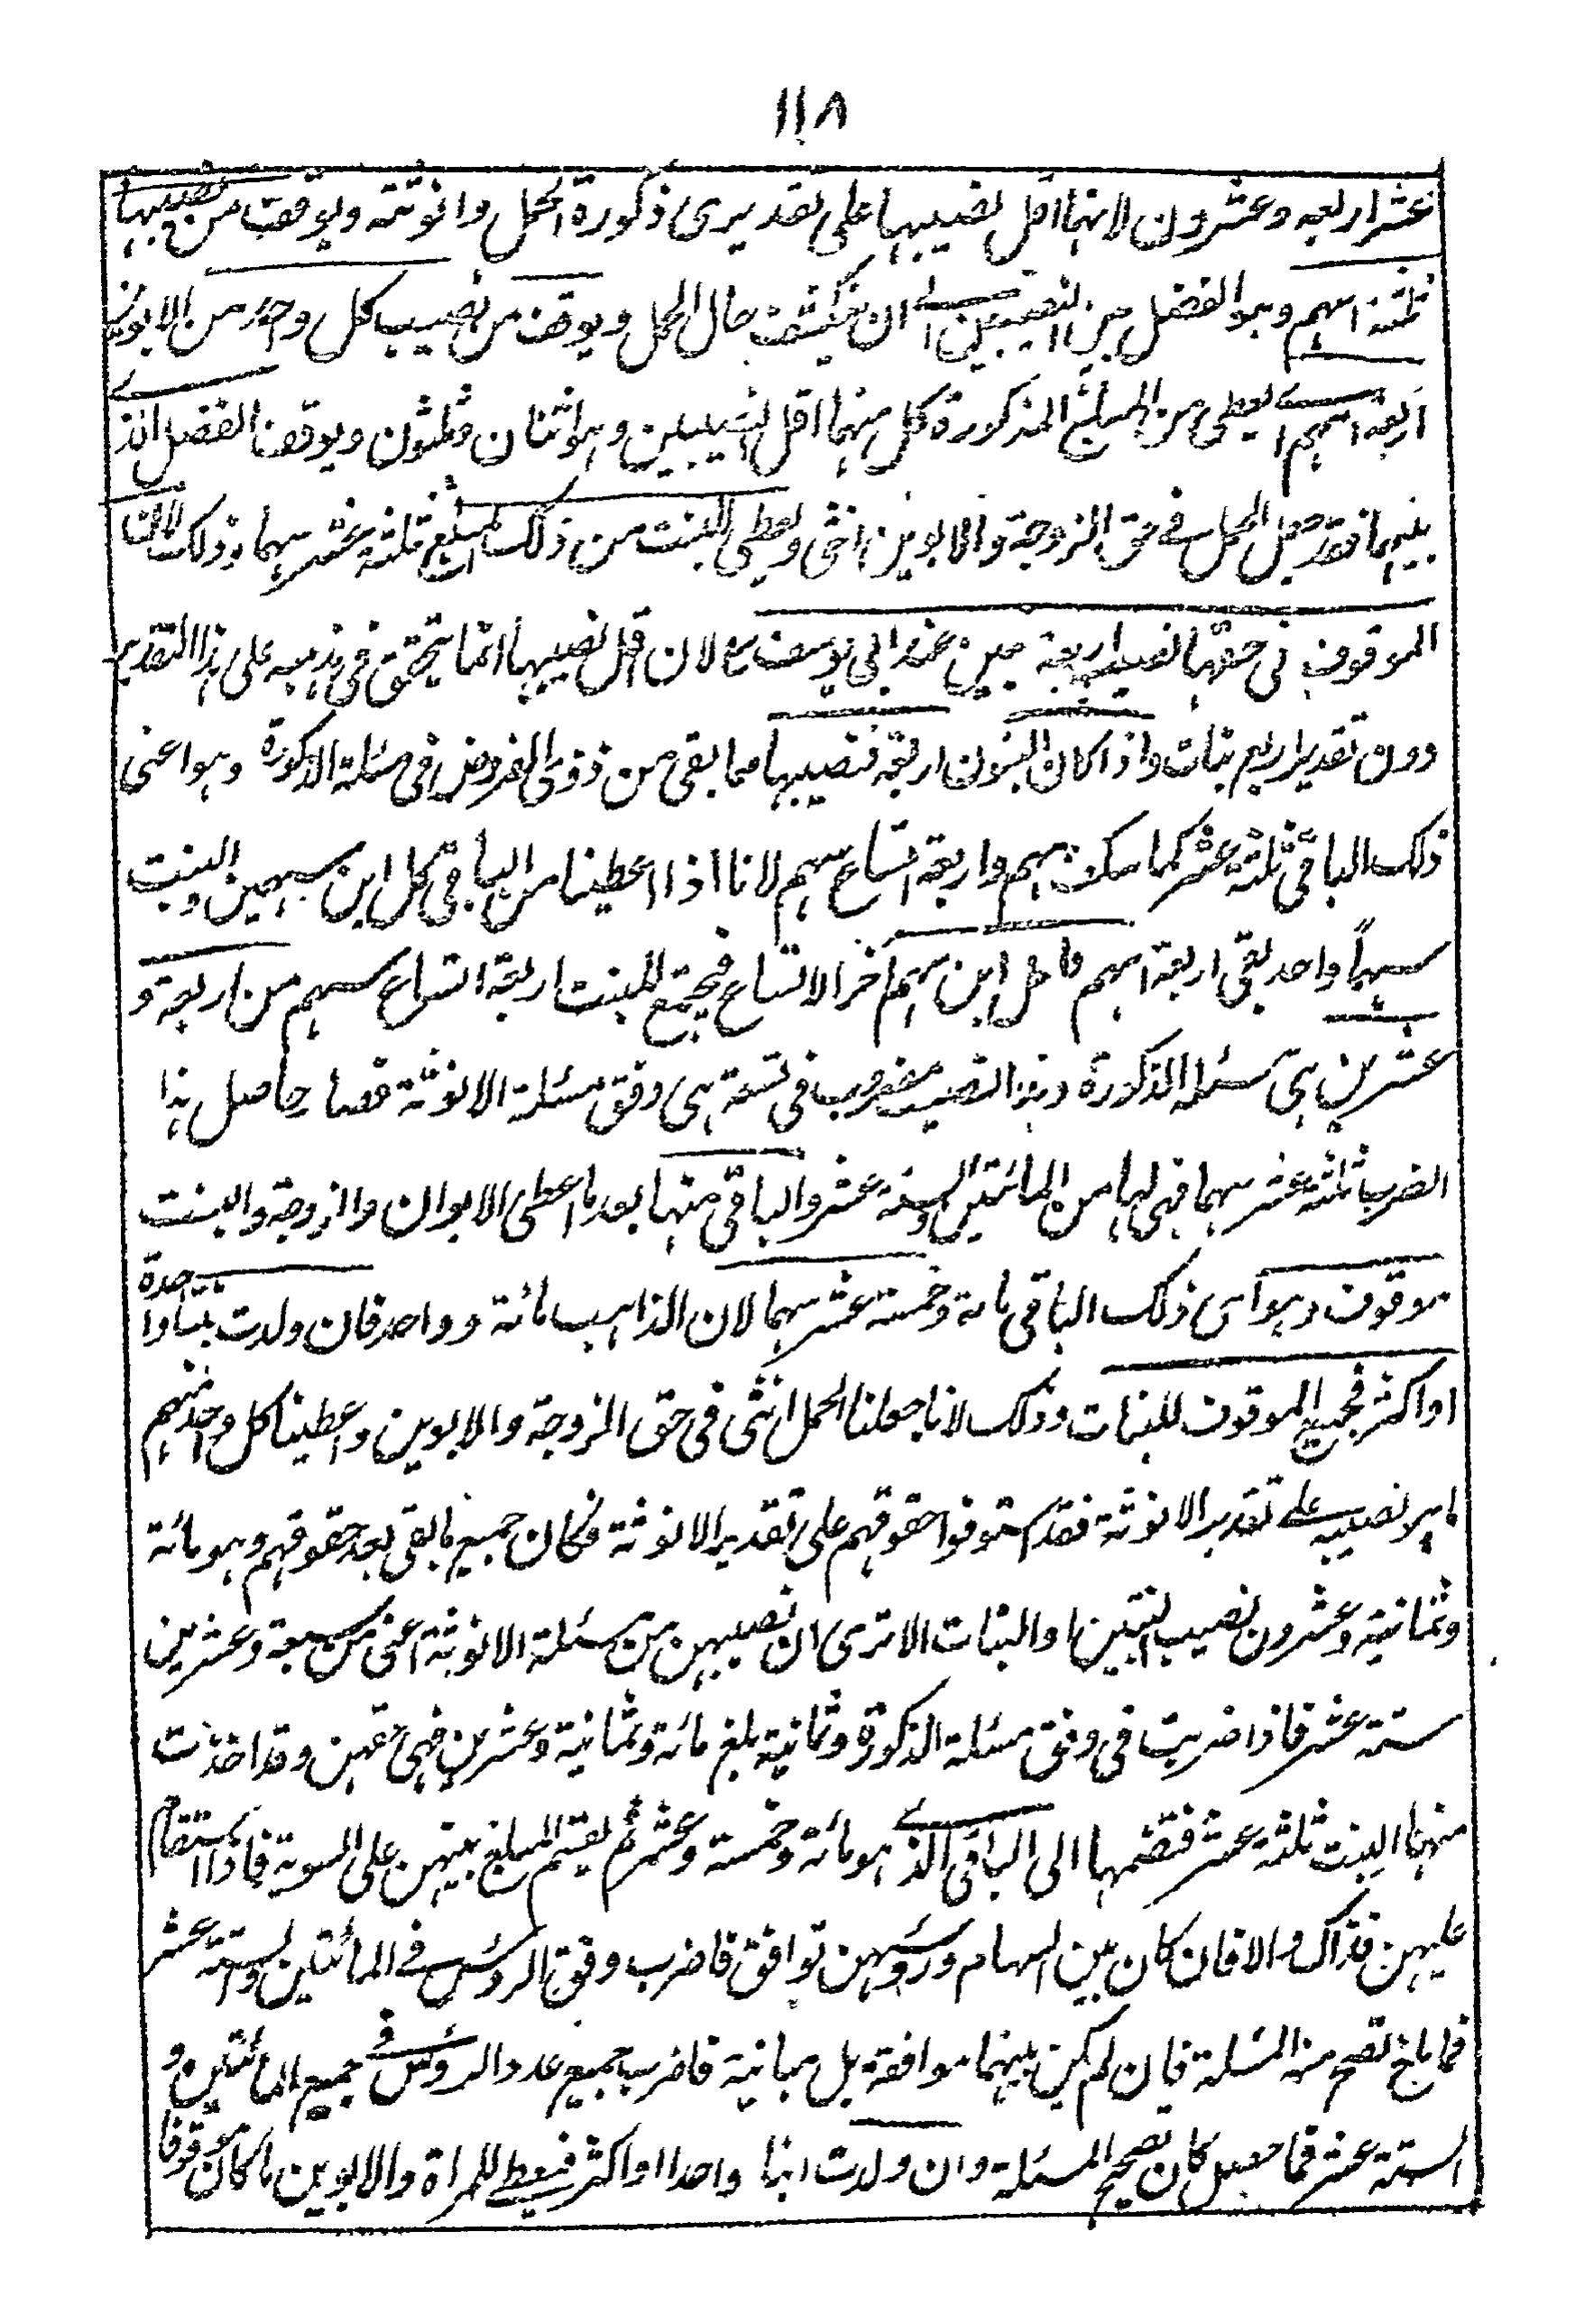 ١١٨
عشر اربعه وعشرون لانهما اقل نصيبها على تقديرى ذكورة الحمل وانوثته ويوقف من نصيبها
ثلثة اسهم وهو الفضل بين النصيبين الے ان ينكشف حال الحمل ويوقف من نصيب كل واحد من الابوين
اربعة اسهم اے يعطى من المبلغ المذكورة كل منهما اقل النصيبين وهو اثنان وثلثون ويوقف الفضل الذے
بينهما فقد جعل الحمل فے حق الزوجة والابوين انثى ويعطى للبنت من ذلك المبلغ ثلثة عشر سهما وذلك لان
الموقوف فى حقها نصيب اربعة بنين عند ابى يوسف رح لان اقل نصيبها انما يتحقق فى مذهبه على هذا التقدير
دون تقدير اربع بنات واذا كان البنون اربعة فنصيبها مما بقى من ذوى الفروض فى مسئلة الذكورة وهو اعنى
ذلك الباقى ثلثة عشر كما سلف سهم واربعة اتساع سهم لانا اذا اعطينا من الباقى كل ابن سهمين والبنت
سهماً واحد بقى اربعة اسهم اخر الاتساع فيجتمع للبنت اربعة اتساع سهم من اربعة و
عشرين هى مسئلة الذكورة وهذا النصيب مضروب فى تسعة هى وفق مسئلة الانوثة فصار حاصل هذا
الضرب ثلثة عشر سهما فهى لها من المائتين والستة عشر والباقى منها بعد ما اعطى الابوان والزوجة والبنت
موقوف وهو اى ذلك الباقى مائة وخمسة عشر سهما لان الذاهب مائة وواحد فان ولدت بنتا واحدة
او اكثر فجميع الموقوف للبنات وذلك لانا جعلنا الحمل انثى فى حق الزوجة والابوين واعطينا كل واحد منهم
ما هو نصيبه على تقدير الانوثة فقد استوفوا حقوقهم على تقدير الانوثة فكان جميع ما بقى بعد حقوقهم وهو مائة
وثمانية وعشرون نصيب البنتين او البنات الا ترى ان نصيبهن من مسئلة الانوثة اعنى من سبعة وعشرين
ستة عشر فاذا ضربت فى وفق مسئلة الذكورة وثمانية بلغ مائة وثمانية وعشرين فهى حقهن وقد اخذت
منها البنت ثلثة عشر فتضمها الى الباقى الذے هو مائة وخمسة وعشر ثم يقسم المبلغ بينهن على السوية فاذا استقام
عليهن فذاك والا فان كان بين السهام ورؤسهن توافق فاضرب وفق الرؤس فے المائتين والستة عشر
فما بلغ تصح منه المسئلة فان لم يكن بينهما موافقة بل مباينة فاضرب جميع عدد الرؤس فے جميع المائتين و
الستة عشر فما حصل كان تصحيح المسئلة وان ولدت ابنا واحدا او اكثر فيعطى للمراة والابوين ما كان موقوفا